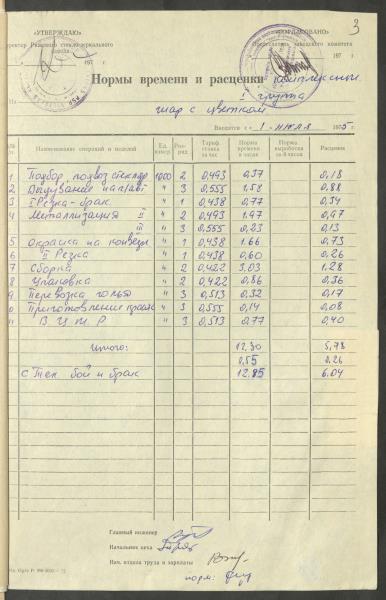 3
«УТВЕРЖДАЮ»
«СОГЛАСОВАНО»
197 г.
197 г.
Нормы времени и расценки комплексные
I группа
На шар с цветком
Вводятся с «1» июля 1975 г.
Наименование операций и изделий
Ед. измер.
Разряд
Тариф. ставка за час
Норма времени в часах
Норма выработки за 8 часов
Расценка
1 Подбор, подвоз стеклодр 1000 2 0,493 0,37 0,18
2 Выдувание 3 0,555 1.58 0,88
3 I Резка - брак " 1 0,438 0,77 0,34
4 Металлизация II " 2 0,493 1,97 0,97
III " 3 0,555 0,23 0,13
5 Окраска на конвейере " 1 0,438 1.66 0,73
6 II Резка " 1 0,438 0,60 0,26
7 Сборка " 2 0,422 3.03 1.28
8 Упаковка " 2 0,422 0,86 0,36
9 Перевозка голья " 3 0,513 0,32 0,17
10 Приготовление красок " 3 0,555 0,14 0,08
11 В Ц Т Р " 3 0,513 0,77 0,40
Итого: 12,30 5,78
0,55 0,26
с Тех бой и брак 12.85 6.04
Главный инженер
Начальник цеха
Нач. отдела труда и зарплаты
норм.